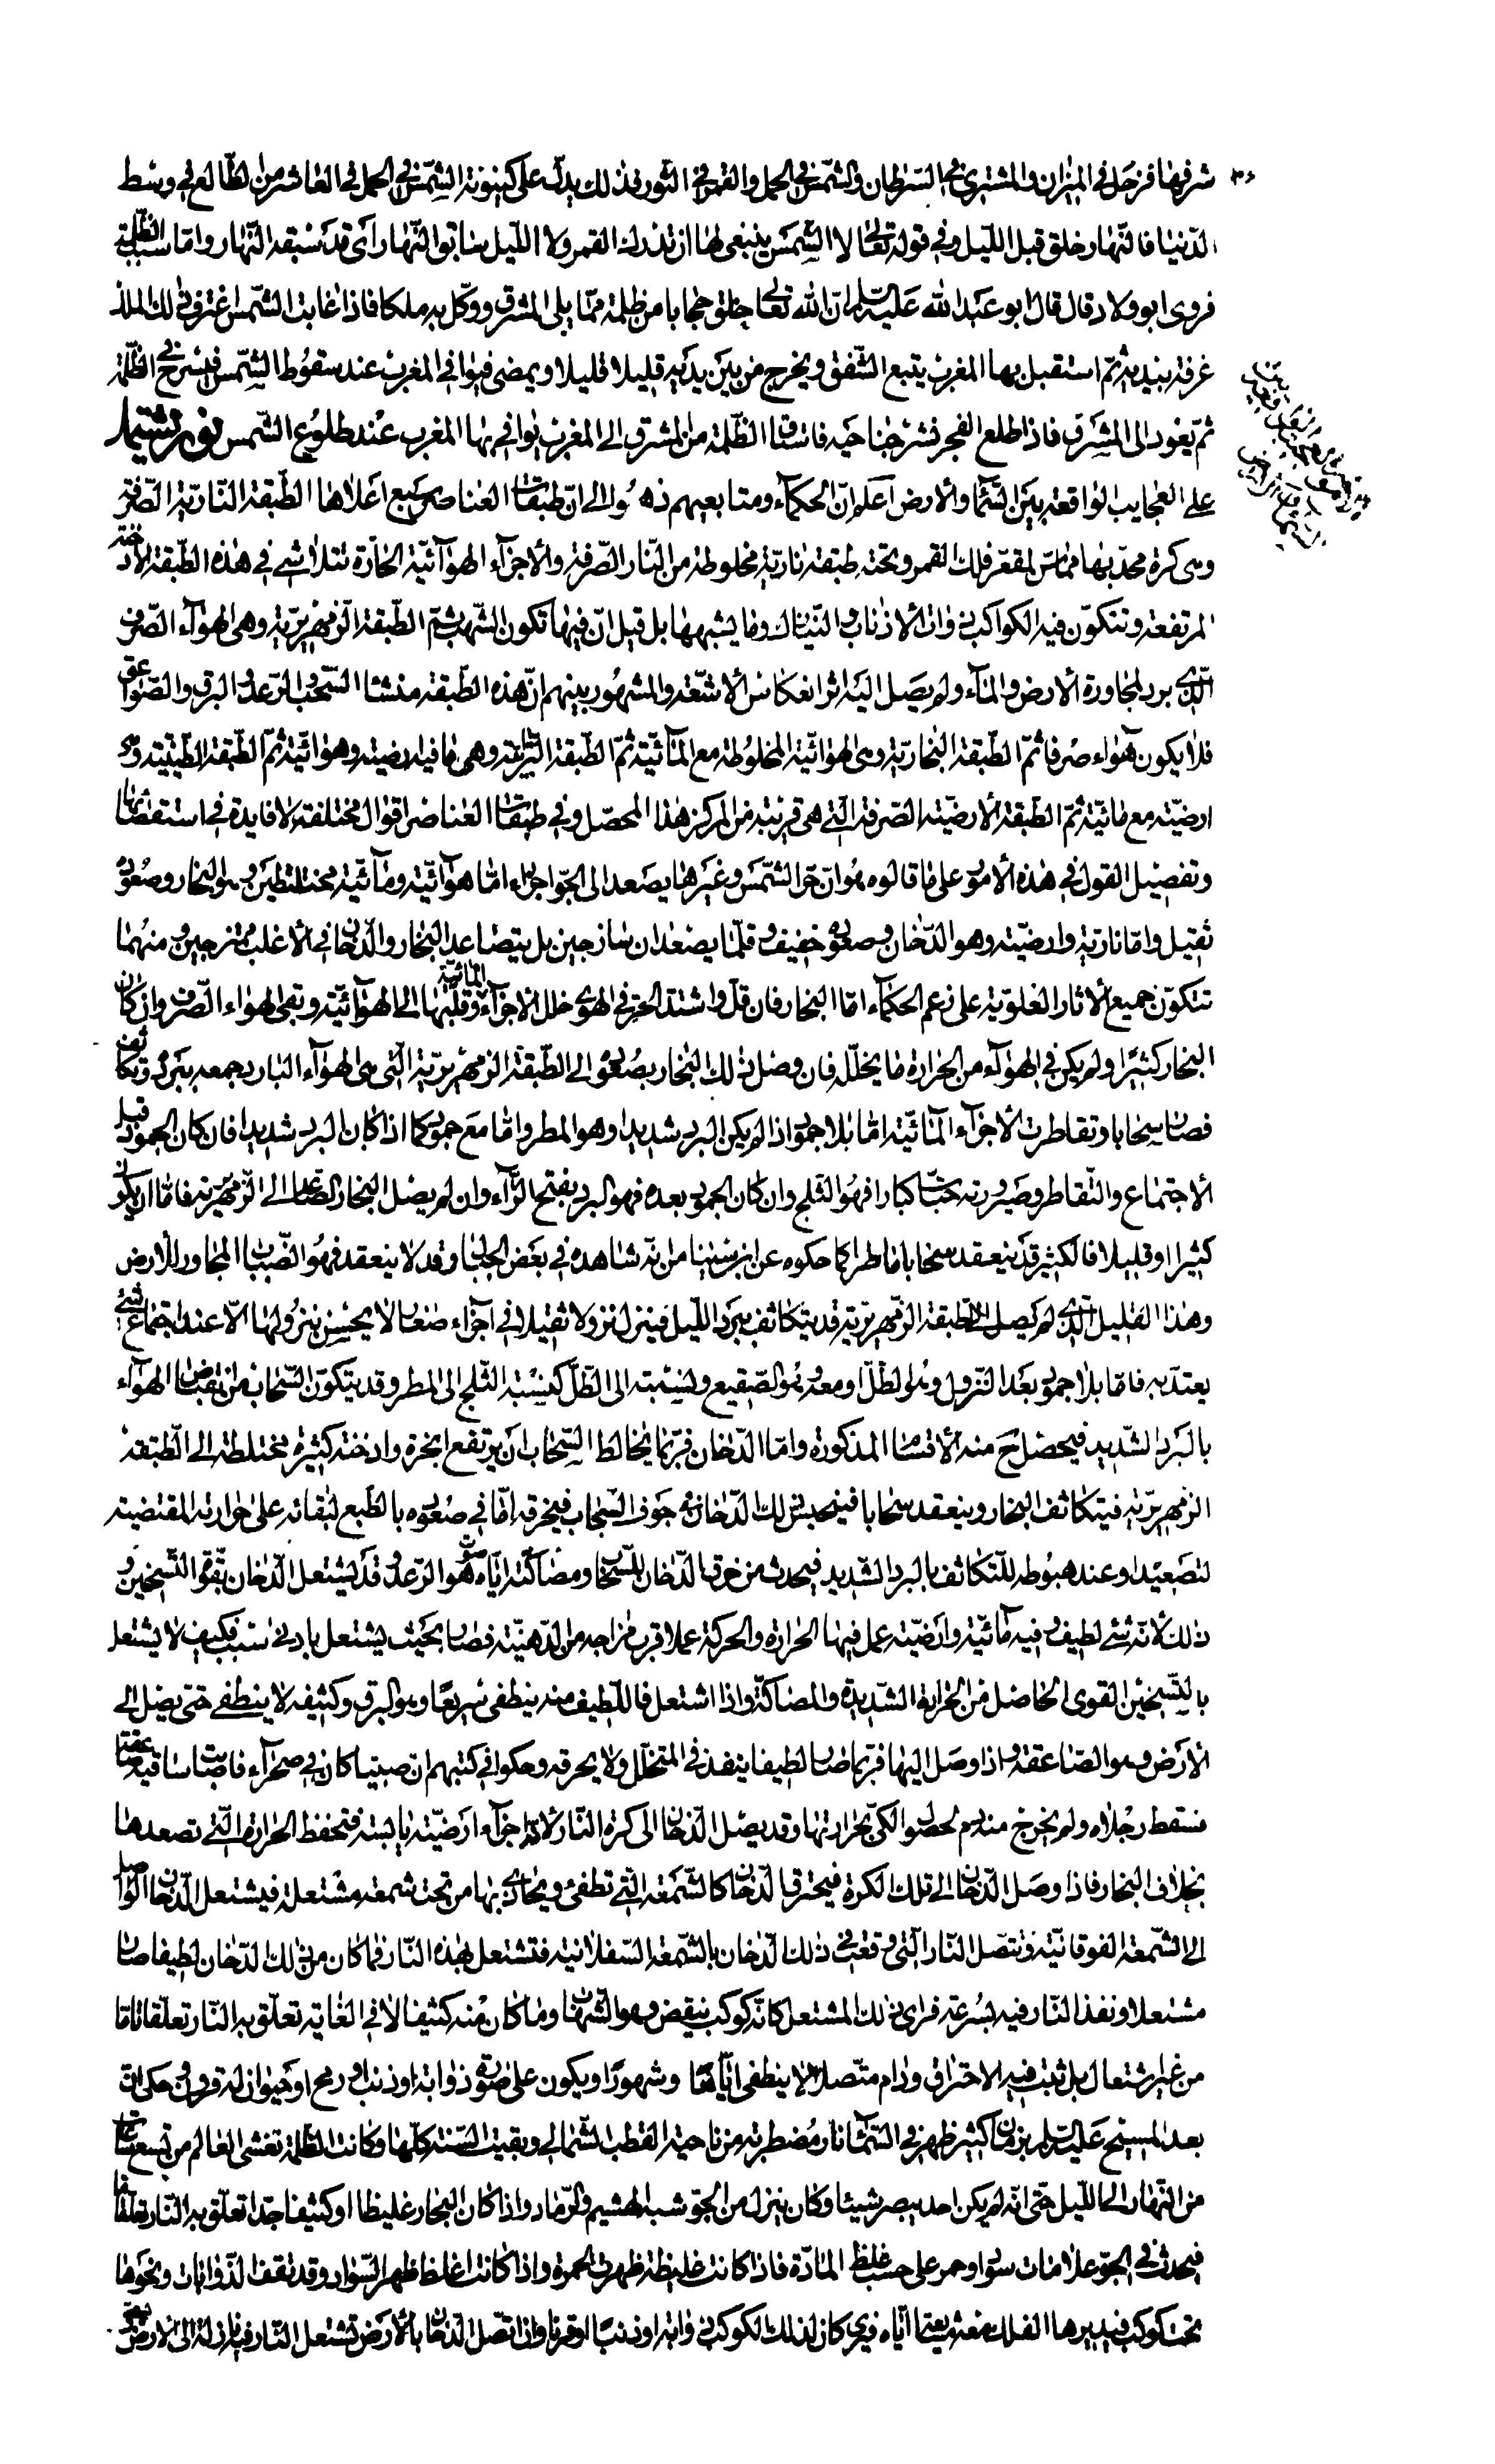 شرفها فزحل في الميزان والمشتري في السرطان والشمس في الحمل والقمر في الثور فذلك يدل على كينونة الشمس في الحمل في العاشر من الطالع في وسط
الدنيا فالنهار خلق قبل الليل وفي قوله تعالى لا الشمس ينبغي لها ان تدرك القمر ولا الليل سابق النهار اي قد سبقه النهار واما سبب الظلمة
فروى ابو ولاد قال قال ابو عبد الله عليه السلم ان الله تعالى خلق حجابا من ظلمة مما يلي المشرق ووكل به ملكا فاذا غابت الشمس اغترف ذلك الملك
غرفة بيديه ثم استقبل بها المغرب يتبع الشفق ويخرج من بين يديه قليلا قليلا ويمضي فيوافي المغرب عند سقوط الشمس فيسرح في الظلمة
ثم يعود الى المشرق فاذا طلع الفجر نشر جناحيه فاستاق الظلمة من المشرق الى المغرب يوافي بها المغرب عند طلوع الشمس نور يشتمل
على العجايب الواقعة بين السماء والارض اعلم ان الحكماء ومتابعيهم ذهبوا الى ان طبقات العناصر سبع اعلاها الطبقة النارية الصرفة
وهي كرة محدبها مماس لمقعر فلك القمر وتحته طبقة نارية مخلوطة من النار الصرفة والاجزاء الهوائية الحارة تتلاشى في هذه الطبقة الادخنة
المرتفعة وتتكون فيه الكواكب ذوات الاذناب والنيازك وما يشبهها بل قيل ان فيها تكون الشهب ثم الطبقة الزمهريرية وهي الهواء الصرف
الذي برد لمجاورة الارض والماء ولم يصل اليه اثر انعكاس الاشعة والمشهور بينهم ان هذه الطبقة منشا السحب والرعد والبرق والصواعق
فلا يكون هواء صرفا ثم الطبقة البخارية وهي الهوائية المخلوطة مع المائية ثم الطبقة وهي ما فيه ارضية وهوائية ثم الطبقة الطينية وهي
ارضية مع مائية ثم الطبقة الارضية الصرفة التي هي قريبة من المركز هذا المحصل وفي طبقات العناصر اقوال مختلفة لا فايدة في استقصائها
وتفصيل القول في هذه الامور على ما قالوه هو ان حر الشمس وغيرها يصعد الى الجو اجزاء اما هوائية ومائية مختلطتين وهو البخار وصعوده
ثقيل واما نارية وارضية وهو الدخان وصعوده خفيف وقلما يصعدان ساذجين بل يتصاعد البخار والدخان في الاغلب ممتزجين ومنهما
تتكون جميع الاثار العلوية على زعم الحكماء اما البخار فان قل واشتد الحر في الهوى حلل الاجزاء المائية وقلبها الى الهوائية وتبقى الهواء الصرف وان كان
البخار كثيرا ولم يكن في الهواء من الحرارة ما يحلله فان وصل ذلك البخار بصعوده الى الطبقة الزمهريرية التي هي الهواء البارد جمعه ببرده وتكاثف
فصار سحابا وتقاطرت الاجزاء المائية اما بلا جمود اذا لم يكن البرد شديدا وهو المطر واما مع جمود كما اذا كان البرد شديدا فان كان الجمود قبل
الاجتماع والتقاطر وصيرورته حبات كبارا فهو الثلج وان كان الجمود بعده فهو البرد بفتح الراء وان لم يصل البخار الصاعد الى الزمهريرية فاما ان يكون
كثيرا او قليلا فالكثير قد ينعقد سحابا ماطرا كما حكوه عن ابن سينا من انه شاهده في بعض الجبال وقد لا ينعقد فهو الضباب المجاور للارض
وهذا القليل الذي لم يصل الى طبقة الزمهريرية قد يتكاثف ببرد الليل فينزل نزولا ثقيلا في اجزاء صغار لا يحس بنزولها الا عند اجتماع شئ
يعتد به فاما بلا جمود بعد النزول وهو الطل او معه وهو الصقيع ونسبته الى الطل كنسبة الثلج الى المطر وقد يتكون السحاب من انقباض الهواء
بالبرد الشديد فيحصل ح منه الاقسام المذكورة واما الدخان فربما يخالط السحاب بان يرتفع ابخرة وادخنة كثيرة مختلطة الى الطبقة
الزمهريرية فيتكاثف البخار وينعقد سحابا فينحبس ذلك الدخان في جوف السحاب فيخرقه اما في صعوده بالطبع لبقائه على حرارته المقتضية
لتصعيده او عند هبوطه للتكاثف بالبرد الشديد فيحدث من خرق الدخان للسحاب ومصاكته اياه صوت هو الرعد وقد يشتعل الدخان بقوة التسخين و
ذلك لانه شئ لطيف وفيه مائية وارضية عمل فيها الحرارة والحركة عملا قرب مزاجه من الدهنية فصار بحيث يشتعل بادنى سبب فكيف لا يشتعل
بالتسخين القوى الحاصل من الحرارة الشديدة والمصاكة واذا اشتعل فاللطيف منه ينطفى سريعا وهو البرق وكثيفه لا ينطفى حتى يصل الى
الارض وهو الصاعقة واذا وصل اليها فربما صار لطيفا ينفذ في المتخلل ولا يحرقه وحكوا في كتبهم ان صبيا كان في صحراء فاصابت ساقيه صاعقة
فسقط رجلاه ولم يخرج منه دم لحصول الكي بحرارتها وقد يصل الدخان الى كرة النار لانه اجزاء ارضية يابسة فتحفظ الحرارة التي تصعدها
بخلاف البخار فاذا وصل الدخان الى تلك الكرة فيحترق الدخان كالشمعة التي تطفئ ويحاذى بها من تحت شمعة مشتعلة فيشتعل الدخان الواصل
الى الشمعة الفوقانية وتتصل النار التي وقعت في ذلك الدخان بالشمعة السفلانية فتشتعل بهذه النار فما كان من ذلك الدخان لطيفا صار
مشتعلا ونفذ النار فيه بسرعة فراى ذلك المشتعل كانه كوكب ينقض وهو الشهاب وما كان منه كثيفا لا في الغاية تعلق به النار تعلقا تاما
من غير اشتعال بل ثبت فيه الاحتراق ودام متصلا لا ينطفى اياما وشهورا ويكون على صورة ذوابة او ذنب او رمح او حيوان له قرون حكى ان
بعد المسيح عليه السلم بزمان كثير ظهر في السماء نار مضطربة من ناحية القطب الشمالي وبقيت السنة كلها وكانت الظلمة تغشى العالم من تسع ساعات
من النهار الى الليل حتى انه لم يكن احد يبصر شيئا وكان ينزل من الجو شبه الهشيم والرماد واذا كان البخار غليظا او كثيفا جدا تعلق به النار تعلقا ما
فيحدث في الجو علامات سود او حمر على حسب غلظ المادة فاذا كانت غليظة ظهرت الحمرة واذا كانت اغلظ ظهر السواد وقد تقف الذوابات ونحوها
تحت كوكب فيديرها الفلك معه اياه فيرى كان لذلك الكوكب ذوابة او ذنبا او قرنا واذا اتصل الدخان بالارض تشتعل النار فيه نازلة الى الارض